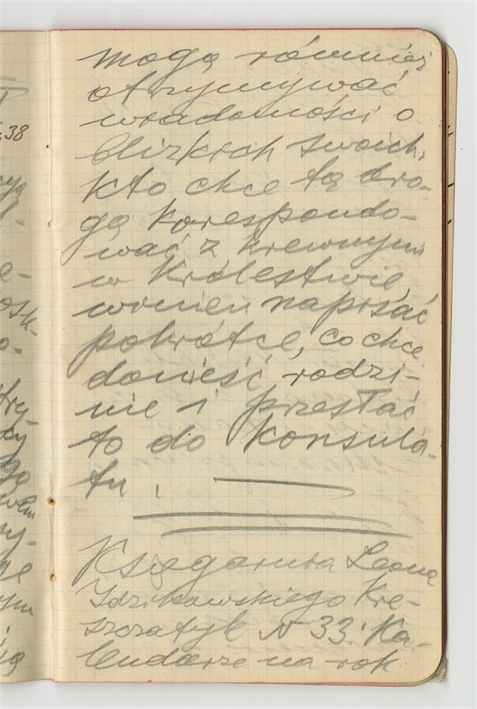 mogą również
otrzymywać
wiadomości o
blizkich swoich,
kto chce tą dro-
gą korespondo-
wać z krewnymi
w Królestwie,
winien napisać
pokrótce, co chce
donieść rodzi-
nie i przesłać
to do konsula-
tu.
Księgarnia Leona
Idzikowskiego Kre-
szczatyk N 33. Ka-
lendarze na rok
38